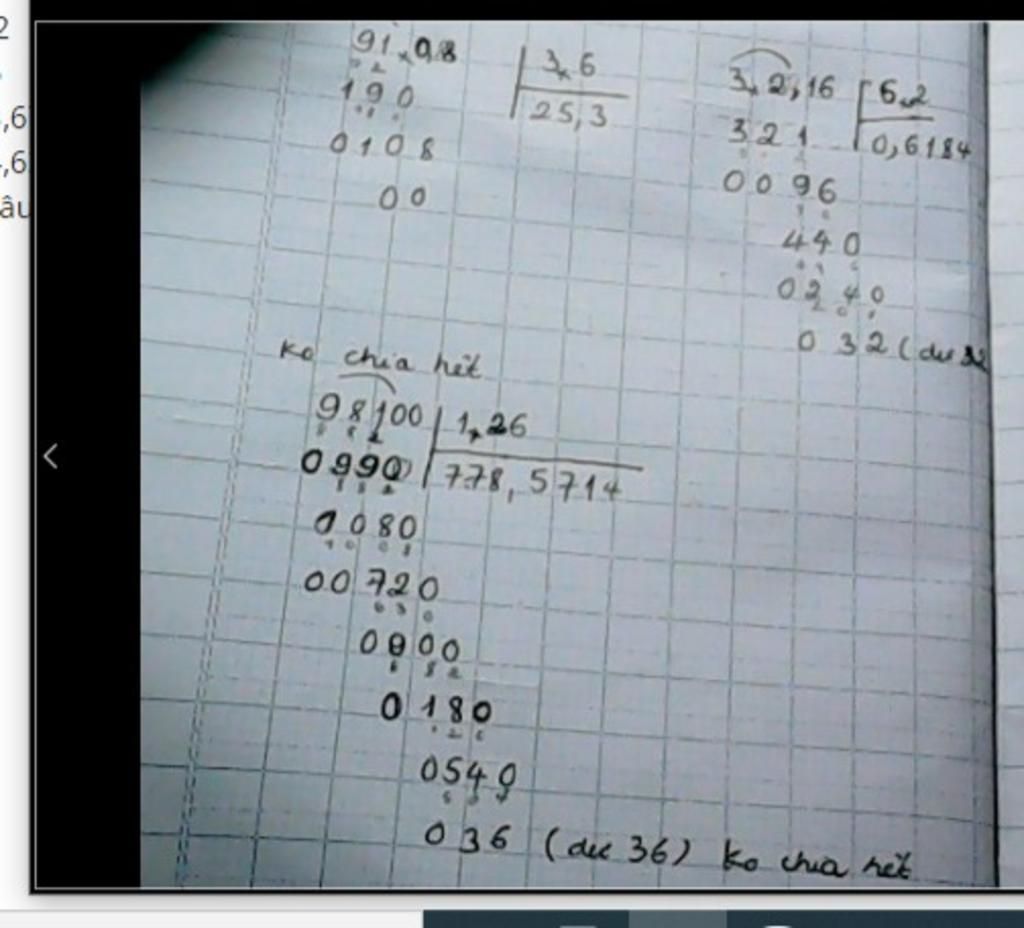 2
,6
,6
âu
91,08 | 3,6
190 | 25,3
0108
00
3,2,16 | 6,2
321 | 0,6184
0096
440
0240
032 (dư 32
Ko chia hết
98100 | 1,26
0990 | 778,5714
1080
00720
0900
0180
0540
036 (dư 36) Ko chia hết